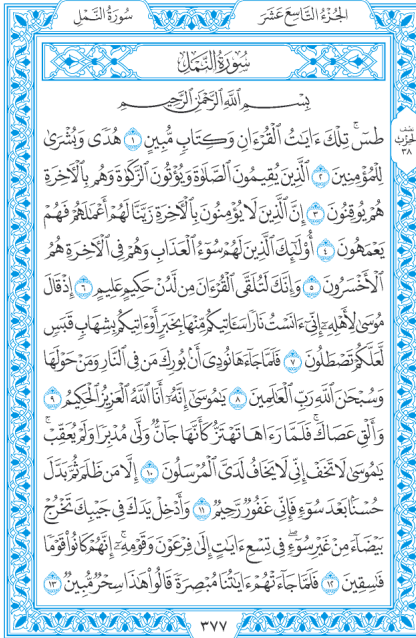 الجُزْءُ التَّاسِعَ عَشَرَ
سُورَةُ النَّمْلِ
سُورَةُ النَّمْلِ
بِسْمِ ٱللَّهِ ٱلرَّحْمَٰنِ ٱلرَّحِيمِ
نصف
الحزب
٣٨
طسٓۚ تِلْكَ ءَايَٰتُ ٱلْقُرْءَانِ وَكِتَابٍ مُّبِينٍ ١ هُدًى وَبُشْرَىٰ
لِلْمُؤْمِنِينَ ٢ ٱلَّذِينَ يُقِيمُونَ ٱلصَّلَوٰةَ وَيُؤْتُونَ ٱلزَّكَوٰةَ وَهُم بِٱلْءَاخِرَةِ
هُمْ يُوقِنُونَ ٣ إِنَّ ٱلَّذِينَ لَا يُؤْمِنُونَ بِٱلْءَاخِرَةِ زَيَّنَّا لَهُمْ أَعْمَٰلَهُمْ فَهُمْ
يَعْمَهُونَ ٤ أُو۟لَٰٓئِكَ ٱلَّذِينَ لَهُمْ سُوٓءُ ٱلْعَذَابِ وَهُمْ فِى ٱلْءَاخِرَةِ هُمُ
ٱلْأَخْسَرُونَ ٥ وَإِنَّكَ لَتُلَقَّى ٱلْقُرْءَانَ مِن لَّدُنْ حَكِيمٍ عَلِيمٍ ٦ إِذْ قَالَ
مُوسَىٰ لِأَهْلِهِۦٓ إِنِّىٓ ءَانَسْتُ نَارًا سَـَٔاتِيكُم مِّنْهَا بِخَبَرٍ أَوْ ءَاتِيكُم بِشِهَابٍ قَبَسٍ
لَّعَلَّكُمْ تَصْطَلُونَ ٧ فَلَمَّا جَآءَهَا نُودِىَ أَنۢ بُورِكَ مَن فِى ٱلنَّارِ وَمَنْ حَوْلَهَا
وَسُبْحَٰنَ ٱللَّهِ رَبِّ ٱلْعَٰلَمِينَ ٨ يَٰمُوسَىٰٓ إِنَّهُۥٓ أَنَا ٱللَّهُ ٱلْعَزِيزُ ٱلْحَكِيمُ ٩
وَأَلْقِ عَصَاكَۚ فَلَمَّا رَءَاهَا تَهْتَزُّ كَأَنَّهَا جَآنٌّ وَلَّىٰ مُدْبِرًا وَلَمْ يُعَقِّبْۚ
يَٰمُوسَىٰ لَا تَخَفْ إِنِّى لَا يَخَافُ لَدَىَّ ٱلْمُرْسَلُونَ ١٠ إِلَّا مَن ظَلَمَ ثُمَّ بَدَّلَ
حُسْنًۢا بَعْدَ سُوٓءٍ فَإِنِّى غَفُورٌ رَّحِيمٌ ١١ وَأَدْخِلْ يَدَكَ فِى جَيْبِكَ تَخْرُجْ
بَيْضَآءَ مِنْ غَيْرِ سُوٓءٍۖ فِى تِسْعِ ءَايَٰتٍ إِلَىٰ فِرْعَوْنَ وَقَوْمِهِۦٓۚ إِنَّهُمْ كَانُوا۟ قَوْمًا
فَٰسِقِينَ ١٢ فَلَمَّا جَآءَتْهُمْ ءَايَٰتُنَا مُبْصِرَةً قَالُوا۟ هَٰذَا سِحْرٌ مُّبِينٌ ١٣
٣٧٧